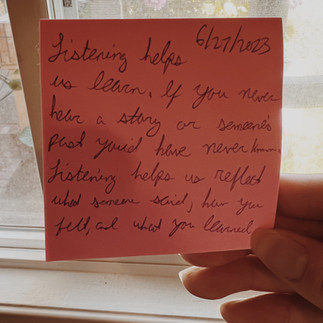 6/27/2023
Listening helps
us learn. If you never
hear a story or someone's
past you'd have never known.
Listening helps us reflect
what someone said, how you
felt, and what you learned